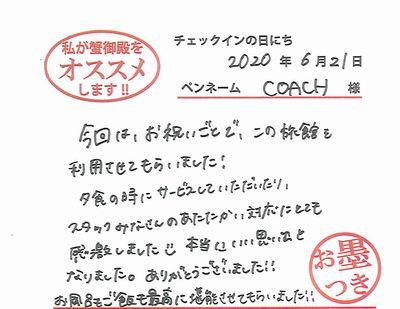 私が蟹御殿を
オススメ
します!!
チェックインの日にち
2020年 6月21日
ペンネーム COACH 様
今回は、お祝いごとで、この旅館を
利用させてもらいました!
夕食の時にサービスしていただいたり、
スタッフみなさんのあたたかい対応にとても
感激しました 本当にいい思い出と
なりました。ありがとうございました!!
お風呂もご飯も最高に堪能させてもらいました!!
お墨
つき